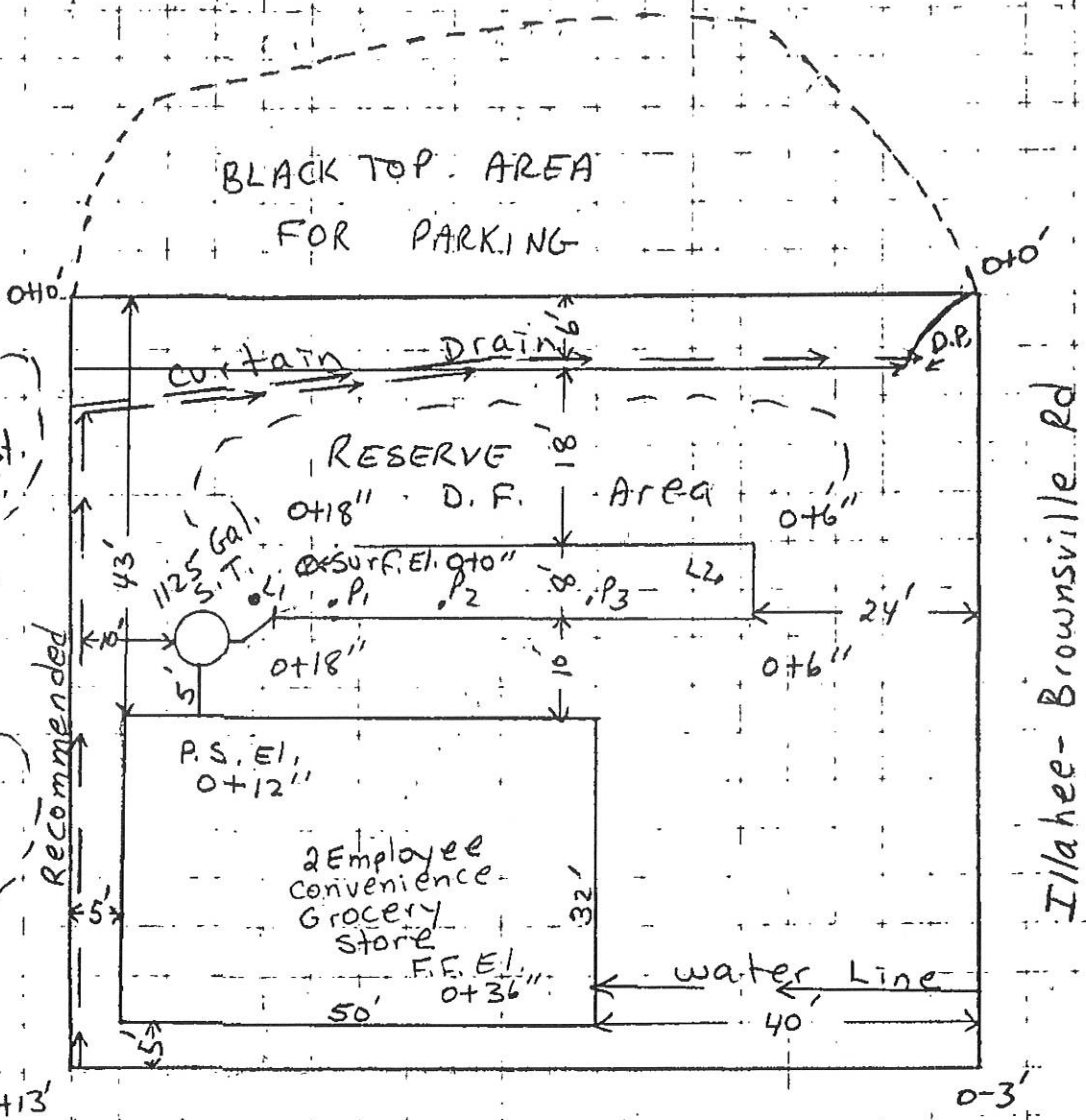 BLACK TOP. AREA
FOR PARKING
0+10'
0+0'
6'
Curtain Drain
D.P.
RESERVE
D.F. Area
18'
0+18"
0+6"
43'
1125 Gal.
S.T.
Surf. El. 0+0"
L1
P1
P2
P3
L2
8'
24'
10'
5'
0+18"
10'
0+6"
Recommended
P.S. El.
0+12"
2 Employee
Convenience
Grocery
Store
F.F. El.
0+36"
32'
5'
50'
Water Line
40'
5'
+13'
0-3'
Illahee- Brownsville Rd